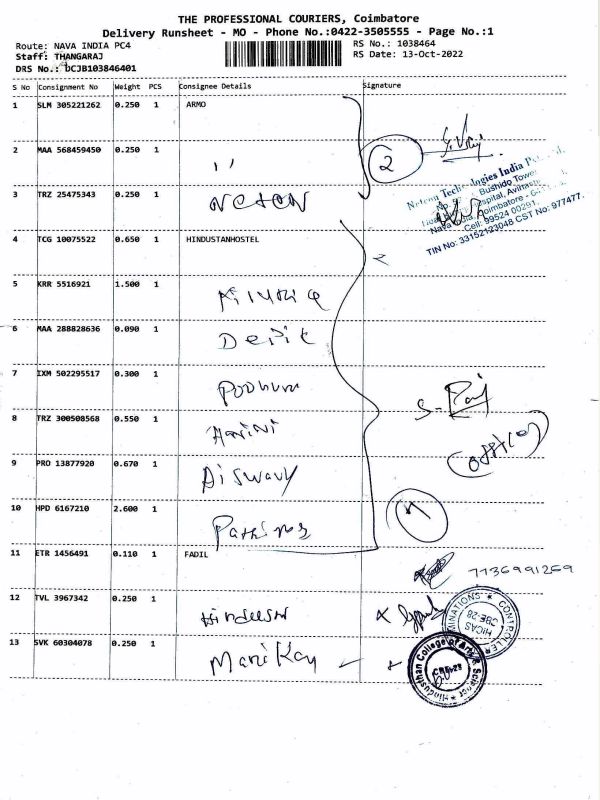 THE PROFESSIONAL COURIERS, Coimbatore
Delivery Runsheet - MO - Phone No.:0422-3505555 - Page No.:1
Route: NAVA INDIA PC4 RS No.: 1038464
Staff: THANGARAJ RS Date: 13-Oct-2022
DRS No.: DCJB103846401
S No Consignment No Weight PCS Consignee Details Signature
1 SLM 305221262 0.250 1 ARMO
2 MAA 568459450 0.250 1 ,,
2
Technologies India
Bushido Tower
Hospital, Avinashi
Coimbatore
Cell: 99524 00291
TIN No: 33152123048 CST No: 977477.
3 TRZ 25475343 0.250 1
4 TCG 10075522 0.650 1 HINDUSTANHOSTEL
5 KRR 5516921 1.500 1
6 MAA 288828636 0.090 1
7 IXM 502295517 0.300 1
8 TRZ 300508568 0.550 1 Harini
9 PRO 13877920 0.670 1 Aiswary
10 HPD 6167210 2.600 1
11 ETR 1456491 0.110 1 FADIL 7736991269
12 TVL 3967342 0.250 1
CONTROLLER HICAS CBE-28
13 SVK 60304078 0.250 1 Mani Kan
Hindusthan College of Arts & Science